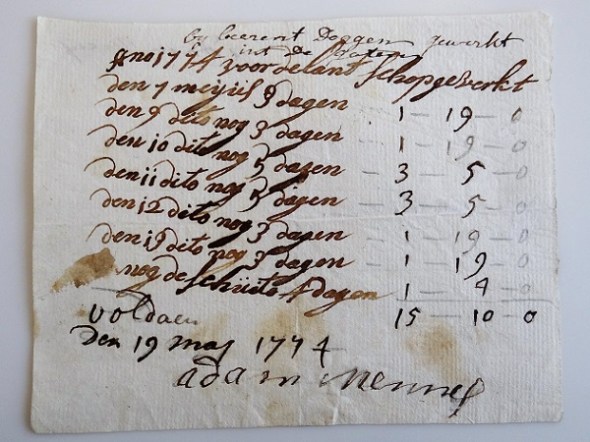 by beerent Doggen gewerkt
int De
Ano 1774 voor de lant schop gewerkt
den 7 meij is 3 dagen — 1 — 19 — 0
den 9 dito nog 3 dagen — 1 — 19 — 0
den 10 dito nog 5 dagen — 3 — 5 — 0
den 11 dito nog 5 dagen — 3 — 5 — 0
den 12 dito nog 3 dagen — 1 — 19 — 0
den 13 dito nog 3 dagen — 1 — 19 — 0
nog de schuite 4 dagen 1 — 4 — 0
voldaen 15 — 10 — 0
Den 19 maij 1774
adam Mennes